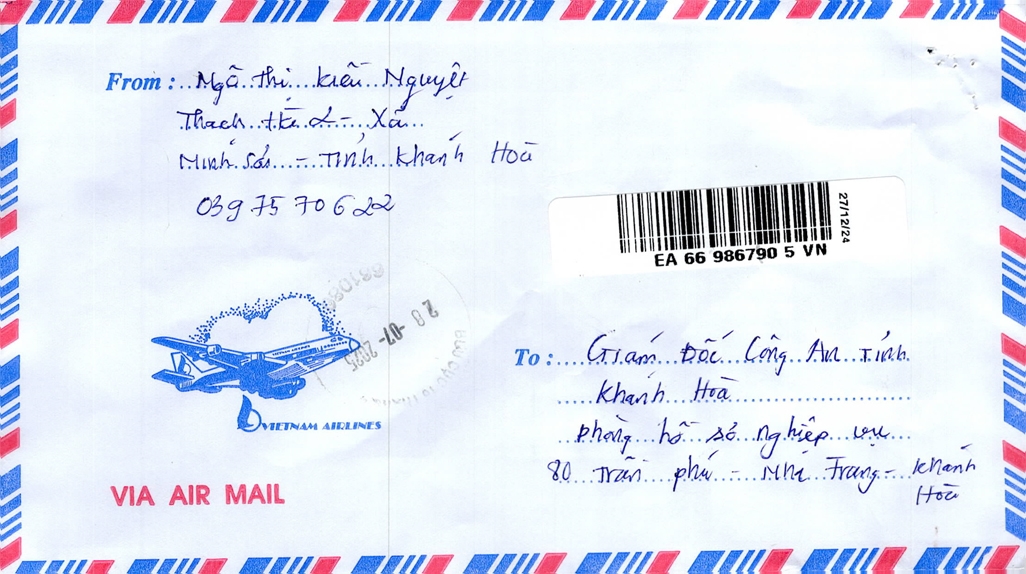 From: Ngô Thị Kiều Nguyệt
Thạch Hà 2 - Xã
Ninh Sơn - Tỉnh Khánh Hoà
0397570622
27/12/24
EA 66 986790 5 VN
28-07-2025
To: Giám Đốc Công An Tỉnh
Khánh Hoà
phòng hồ sơ nghiệp vụ
80 Trần phú - Nha Trang - Khánh
Hoà
VIETNAM AIRLINES
VIA AIR MAIL